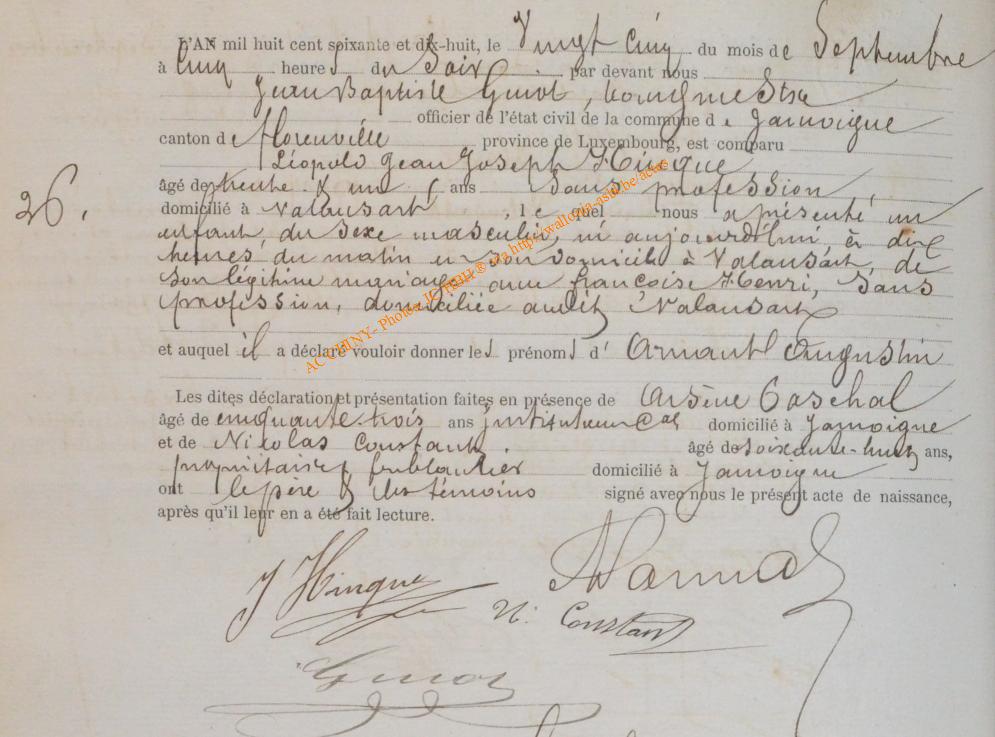 L'AN mil huit cent soixante et dix-huit, le Vingt Cinq du mois de Septembre
à Cinq heures du Soir par devant nous
Jean Baptiste Guiot, bourgmestre
officier de l'état civil de la commune de Jamoigne
canton de florenville province de Luxembourg, est comparu
Léopold Jean Joseph Hinque
âgé de trente & un ans Sans profession
domicilié à Valansart, le quel nous a présenté un
enfant, du sexe masculin, né aujourd'hui, à dix
heures du matin en son domicile à Valansart, de
son légitime mariage avec françoise Henri, Sans
profession, domiciliée audit Valansart
26.
et auquel il a déclaré vouloir donner les prénoms d' Armant Augustin
Les dites déclaration et présentation faites en présence de Arsène
âgé de cinquante-trois ans instituteur Cal domicilié à Jamoigne
et de Nicolas Constant. âgé de soixante-huit ans,
propriétaire & domicilié à Jamoigne
ont le père & les témoins signé avec nous le présent acte de naissance,
après qu'il leur en a été fait lecture.
J Hinque
N. Constant
Guiot
ACCHINY- Photos via http://wallonia-asbl.be/actes